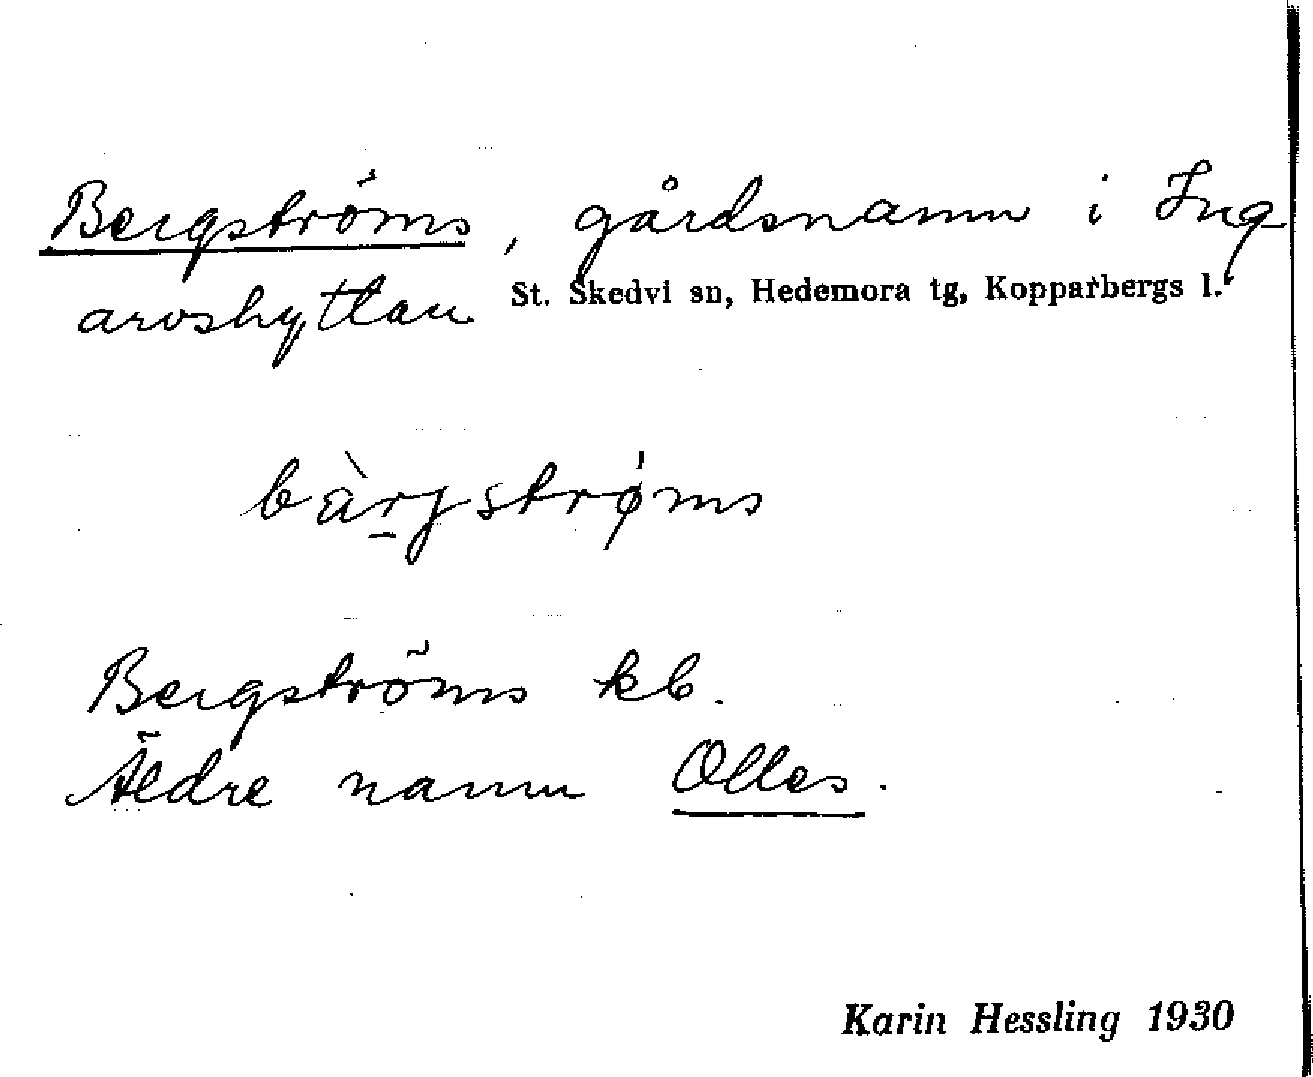 Bergströms, gårdsnamn i Ing
arvshyttan St. Skedvi sn, Hedemora tg, Kopparbergs l.
bàrgstrøms
Bergströms kb.
Äldre namn Olles.
Karin Hessling 1930